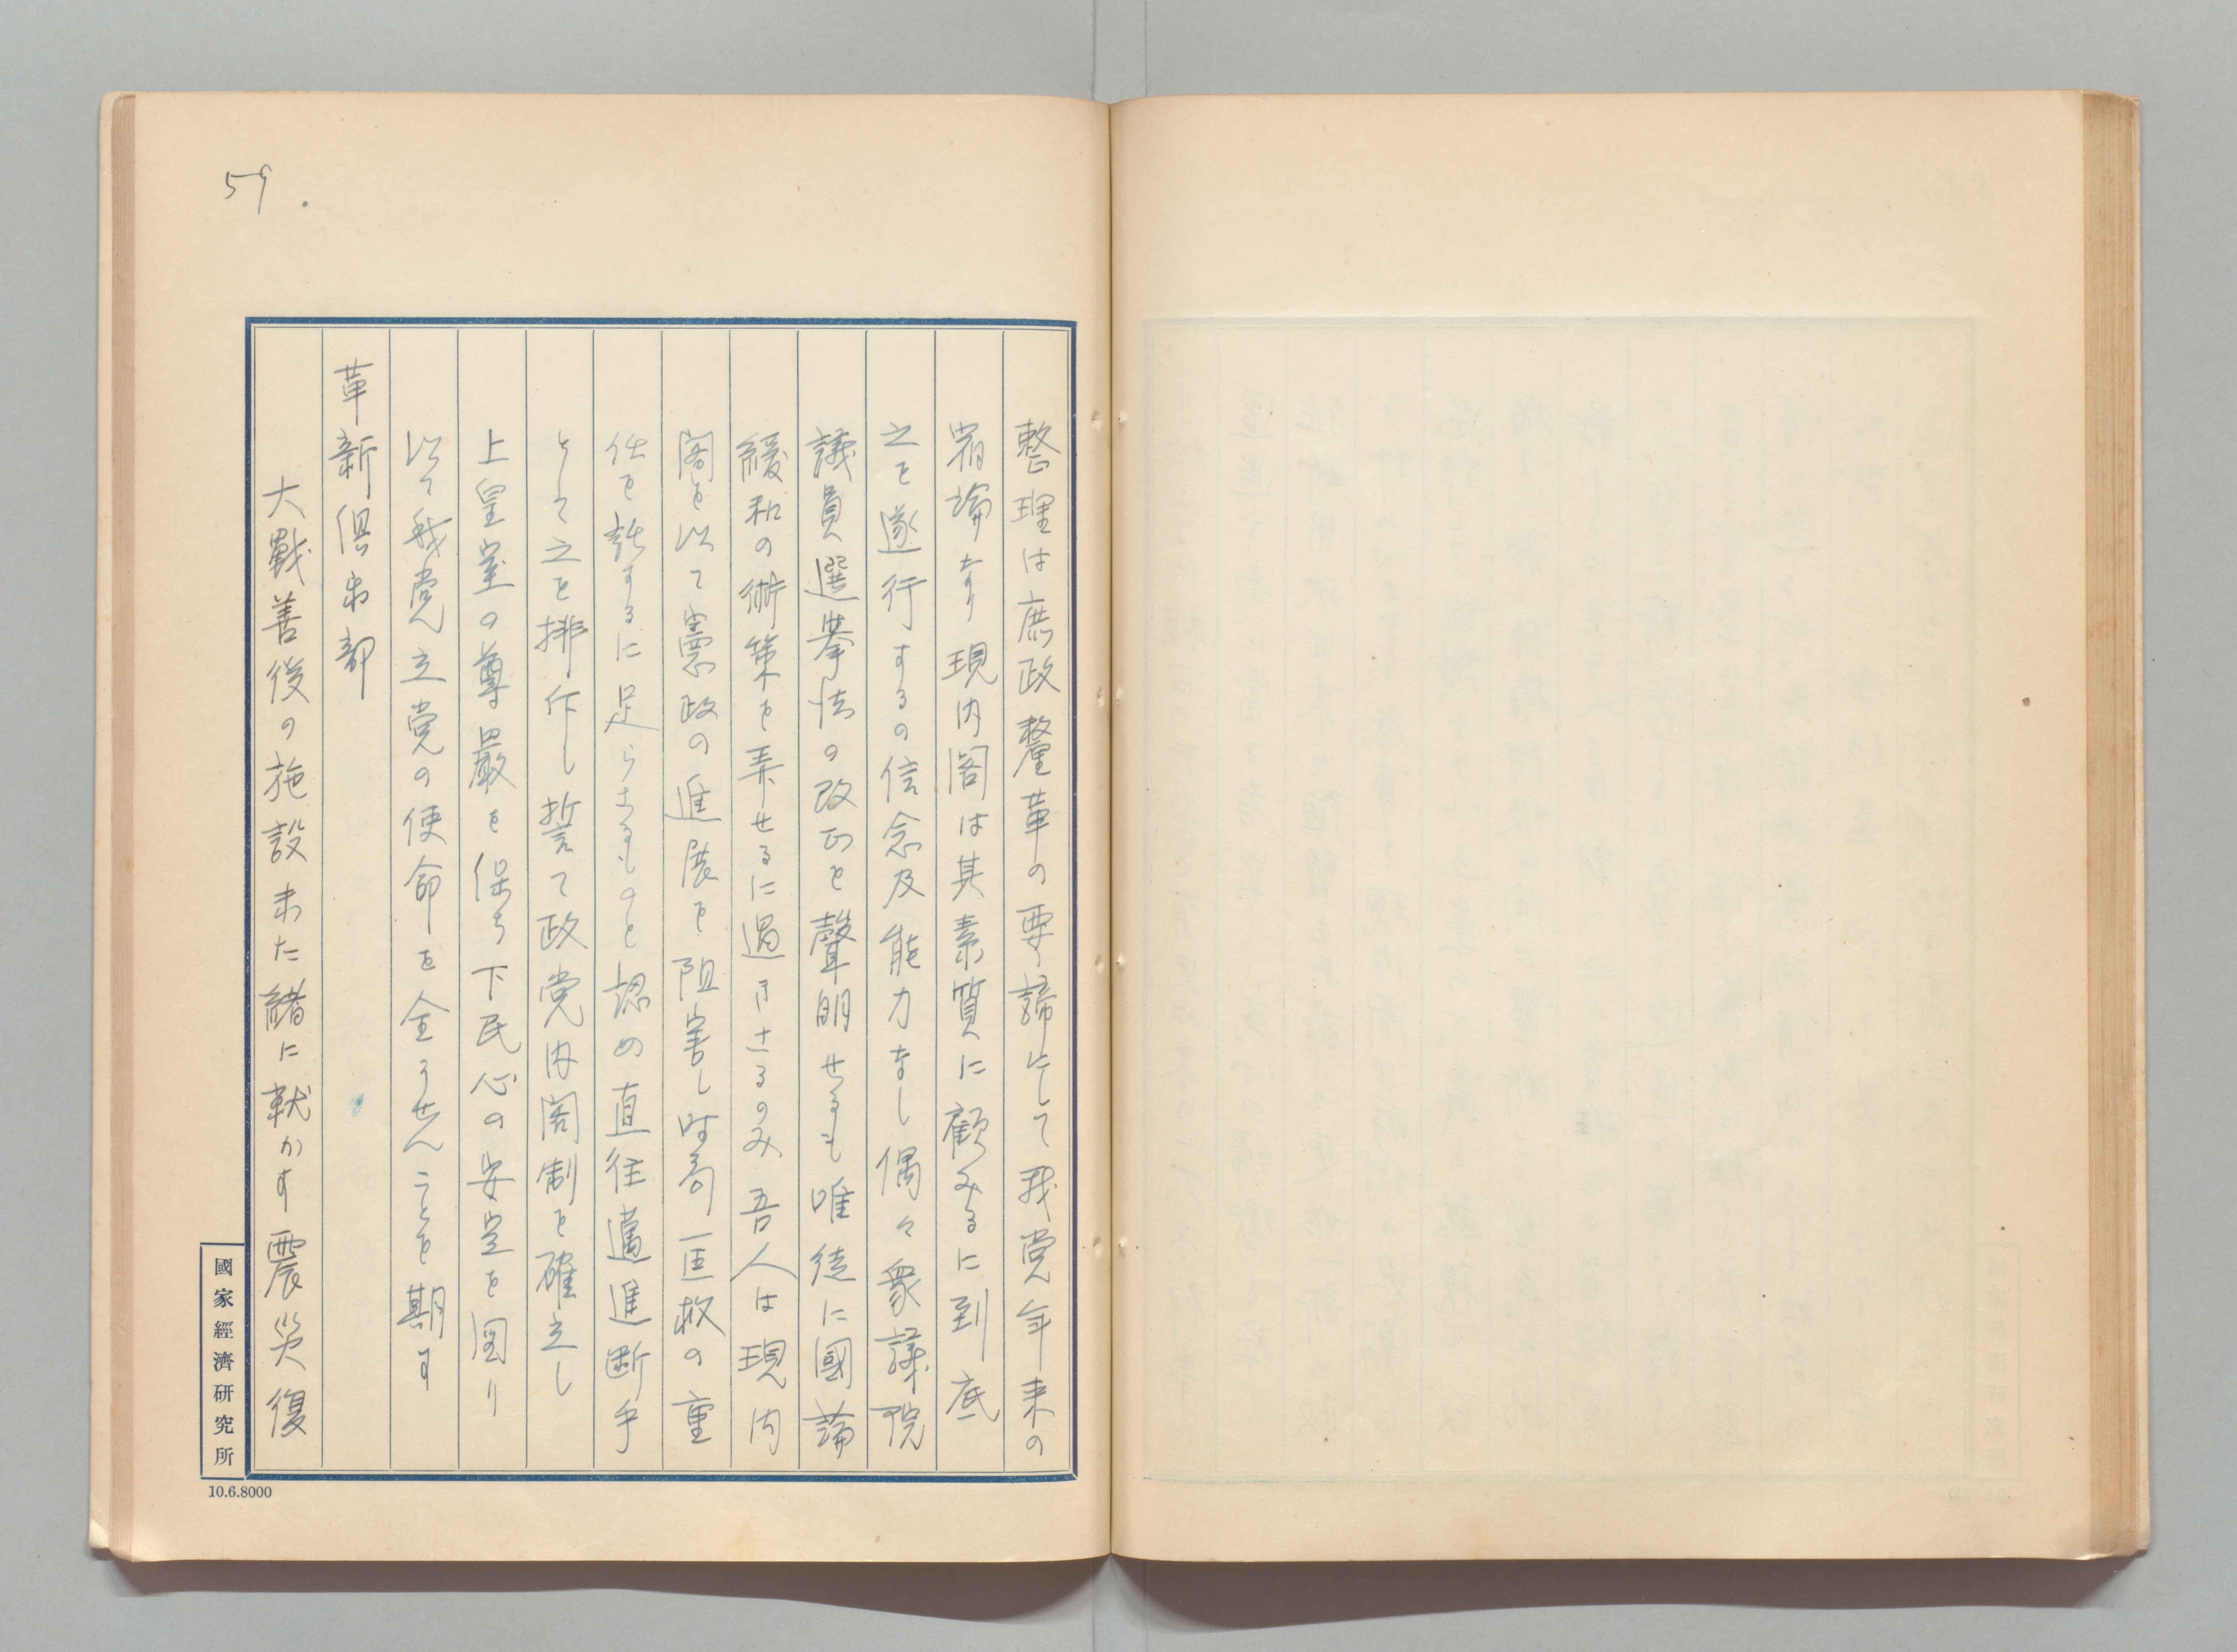 59
整理は庶政釐革の要諦にして我党年来の
宿論なり現内閣は其素質に顧みるに到底
之を遂行するの信念及能力なし偶々衆議院
議員選挙法の改正を聲明せるも唯徒に國論
緩和の術策を弄せるに過きさるのみ吾人は現内
閣を以て憲政の進展を阻害し時局匡救の重
任を託するに足らさるものと認め直往邁進断乎
として之を排斥し誓て政党内閣制を確立し
上皇室の尊嚴を保ち下民心の安定を図り
以て我党立党の使命を全うせんことを期す
革新倶楽部
大戰善後の施設未た緒に就かす震災復
國家經濟研究所
10.6.8000